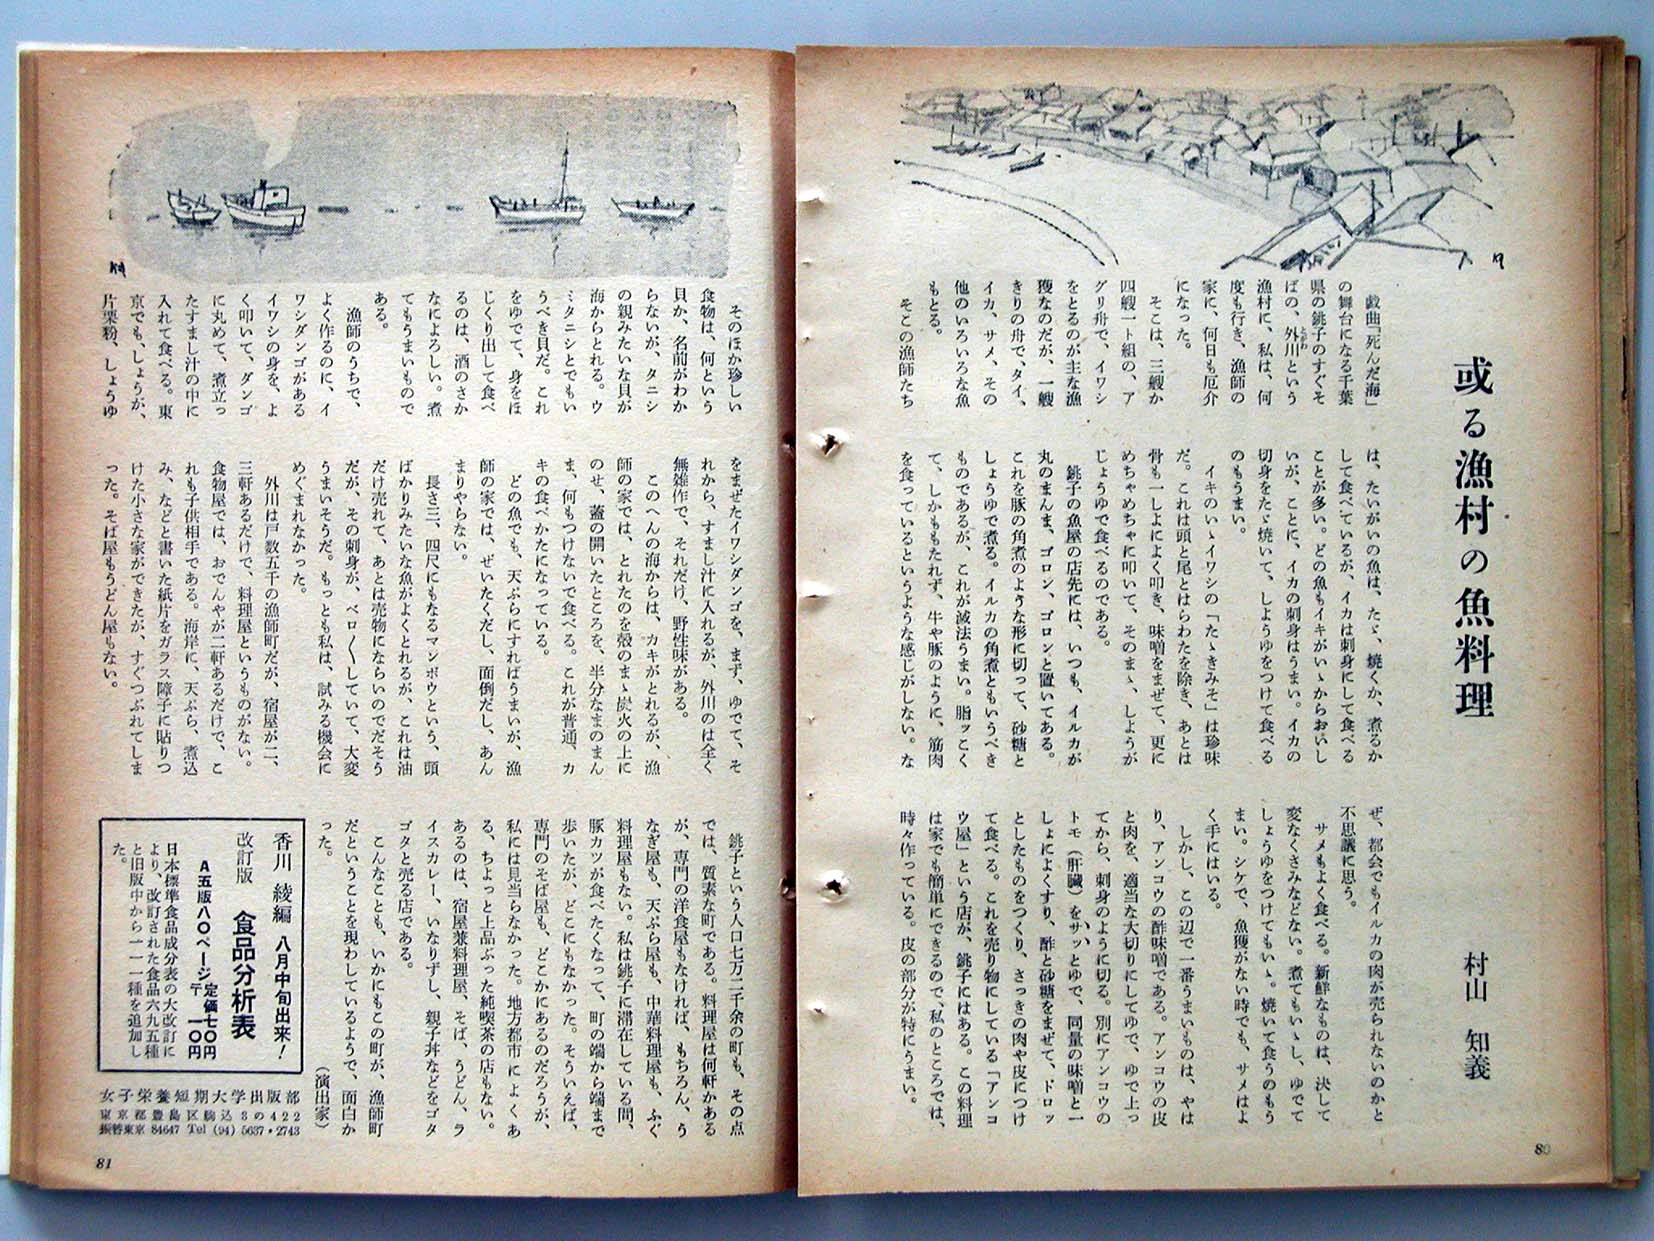 或る漁村の魚料理
村山 知義
戯曲「死んだ海」
の舞台になる千葉
県の銚子のすぐそ
ばの、外川という
とがわ
漁村に、私は、何
度も行き、漁師の
家に、何日も厄介
になった。
そこは、三艘か
四艘一ト組の、ア
グリ舟で、イワシ
をとるのが主な漁
獲なのだが、一艘
きりの舟で、タイ、
イカ、サメ、その
他のいろいろな魚
もとる。
そこの漁師たち
は、たいがいの魚は、たゞ、焼くか、煮るか
して食べているが、イカは刺身にして食べる
ことが多い。どの魚もイキがいゝからおいし
いが、ことに、イカの刺身はうまい。イカの
切身をたゞ焼いて、しようゆをつけて食べる
のもうまい。
イキのいゝイワシの「たゝきみそ」は珍味
だ。これは頭と尾とはらわたを除き、あとは
骨も一しよによく叩き、味噌をまぜて、更に
めちゃめちゃに叩いて、そのまゝ、しようが
じょうゆで食べるのである。
銚子の魚屋の店先には、いつも、イルカが
丸のまんま、ゴロン、ゴロンと置いてある。
これを豚の角煮のような形に切って、砂糖と
しょうゆで煮る。イルカの角煮ともいうべき
ものであるが、これが滅法うまい。脂ッこく
て、しかももたれず、牛や豚のように、筋肉
を食っているというような感じがしない。な
ぜ、都会でもイルカの肉が売られないのかと
不思議に思う。
サメもよく食べる。新鮮なものは、決して
変なくさみなどない。煮てもいゝし、ゆでて
しょうゆをつけてもいゝ。焼いて食うのもう
まい。シケで、魚獲がない時でも、サメはよ
く手にはいる。
しかし、この辺で一番うまいものは、やは
り、アンコウの酢味噌である。アンコウの皮
と肉を、適当な大切りにしてゆで、ゆで上っ
てから、刺身のように切る。別にアンコウの
トモ（肝臓）をサッとゆで、同量の味噌と一
しょによくすり、酢と砂糖をまぜて、ドロッ
としたものをつくり、さっきの肉や皮につけ
て食べる。これを売り物にしている「アンコ
ウ屋」という店が、銚子にはある。この料理
は家でも簡単にできるので、私のところでは、
時々作っている。皮の部分が特にうまい。
80
そのほか珍しい
食物は、何という
貝か、名前がわか
らないが、タニシ
の親みたいな貝が
海からとれる。ウ
ミタニシとでもい
うべき貝だ。これ
をゆでて、身をほ
じくり出して食べ
るのは、酒のさか
なによろしい。煮
てもうまいもので
ある。
漁師のうちで、
よく作るのに、イ
ワシダンゴがある
イワシの身を、よ
く叩いて、ダンゴ
に丸めて、煮立っ
たすまし汁の中に
入れて食べる。東
京でも、しょうが、
片栗粉、しょうゆ
をまぜたイワシダンゴを、まず、ゆでて、そ
れから、すまし汁に入れるが、外川のは全く
無雑作で、それだけ、野性味がある。
このへんの海からは、カキがとれるが、漁
師の家では、とれたのを殻のまゝ炭火の上に
のせ、蓋の開いたところを、半分なまのまん
ま、何もつけないで食べる。これが普通、カ
キの食べかたになっている。
どの魚でも、天ぷらにすればうまいが、漁
師の家では、ぜいたくだし、面倒だし、あん
まりやらない。
長さ三、四尺にもなるマンボウという、頭
ばかりみたいな魚がよくとれるが、これは油
だけ売れて、あとは売物にならいのでだそう
だが、その刺身が、ベロ〳〵していて、大変
うまいそうだ。もっとも私は、試みる機会に
めぐまれなかった。
外川は戸数五千の漁師町だが、宿屋が二、
三軒あるだけで、料理屋というものがない。
食物屋では、おでんやが二軒あるだけで、こ
れも子供相手である。海岸に、天ぷら、煮込
み、などと書いた紙片をガラス障子に貼りつ
けた小さな家ができたが、すぐつぶれてしま
った。そば屋もうどん屋もない。
銚子という人口七万二千余の町も、その点
では、質素な町である。料理屋は何軒かある
が、専門の洋食屋もなければ、もちろん、う
なぎ屋も、天ぷら屋も、中華料理屋も、ふぐ
料理屋もない。私は銚子に滞在している間、
豚カツが食べたくなって、町の端から端まで
歩いたが、どこにもなかった。そういえば、
専門のそば屋も、どこかにあるのだろうが、
私には見当らなかった。地方都市によくあ
る、ちょっと上品ぶった純喫茶の店もない。
あるのは、宿屋兼料理屋、そば、うどん、ラ
イスカレー、いなりずし、親子丼などをゴタ
ゴタと売る店である。
こんなことも、いかにもこの町が、漁師町
だということを現わしているようで、面白か
った。
（演出家）
香川 綾編 八月中旬出来！
改訂版 食品分析表
A五版八〇ページ 定価七〇円
〒 一〇円
日本標準食品成分表の大改訂に
より、改訂された食品六九五種
と旧版中から一一一種を追加し
た。
女子栄養短期大学出版部
東京都豊島区駒込3の422
振替東京 84647 Tel (94) 5637・2743
81